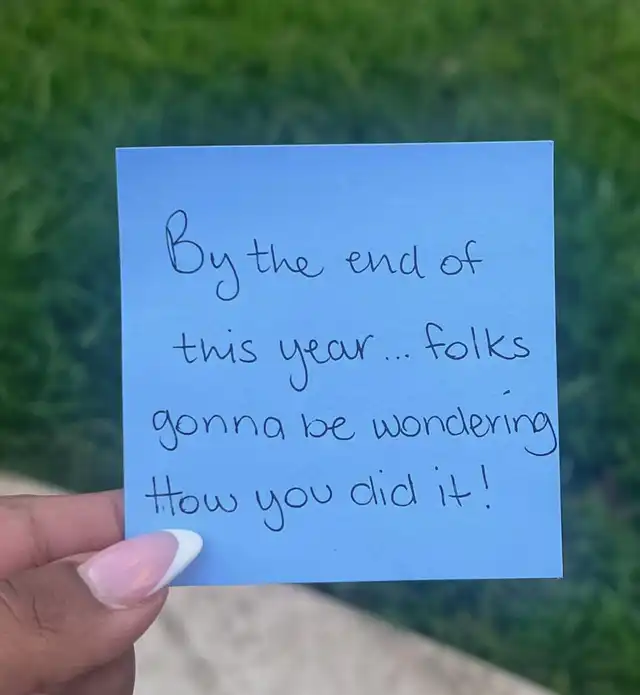 By the end of
this year... folks
gonna be wondering
How you did it!